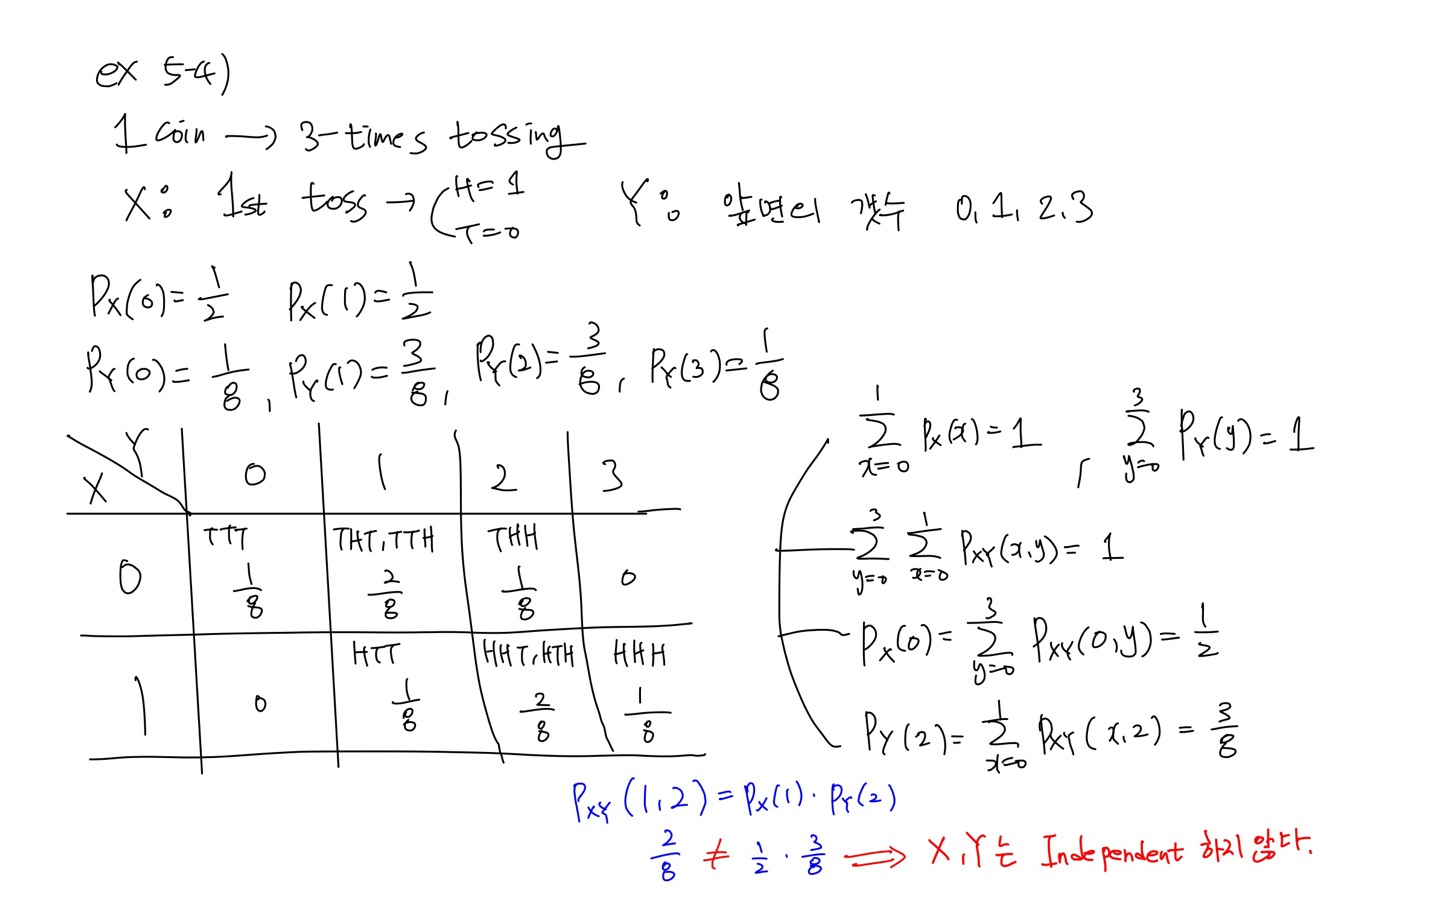 ex 5-4)
1 coin → 3-times tossing
X: 1st toss → ( H=1 T=0 Y: 앞면의 갯수 0, 1, 2. 3
P_X(0) = 1/2 P_X(1) = 1/2
P_Y(0) = 1/8 , P_Y(1) = 3/8 , P_Y(2) = 3/8 , P_Y(3) = 1/8
X \ Y 0 1 2 3
TTT THT, TTH THH
0 1/8 2/8 1/8 0
HTT HHT, HTH HHH
1 0 1/8 2/8 1/8
∑_{x=0}^{1} P_X(x) = 1 , ∑_{y=0}^{3} P_Y(y) = 1
∑_{y=0}^{3} ∑_{x=0}^{1} P_XY(x,y) = 1
P_X(0) = ∑_{y=0}^{3} P_XY(0,y) = 1/2
P_Y(2) = ∑_{x=0}^{1} P_XY(x,2) = 3/8
P_XY(1,2) = P_X(1) · P_Y(2)
2/8 ≠ 1/2 · 3/8 ⟹ X, Y는 Independent 하지 않다.